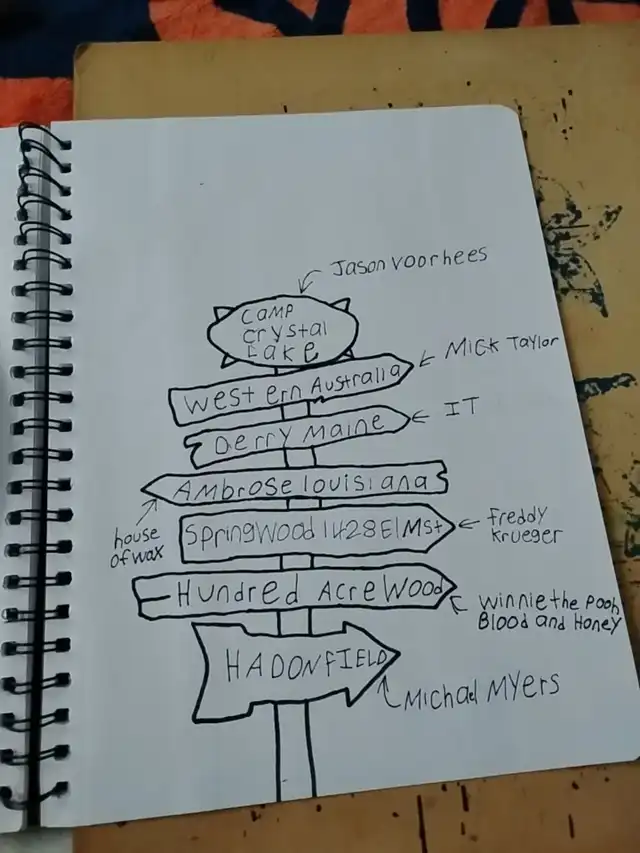 Jason Voorhees
CAMP
Crystal
Lake
Mick Taylor
Western Australia
IT
Derry Maine
Ambrose louisiana
house
of wax
Springwood 1428 Elm St
freddy
krueger
Hundred Acre Wood
Winnie the Pooh
Blood and Honey
HADONFIELD
Michael Myers